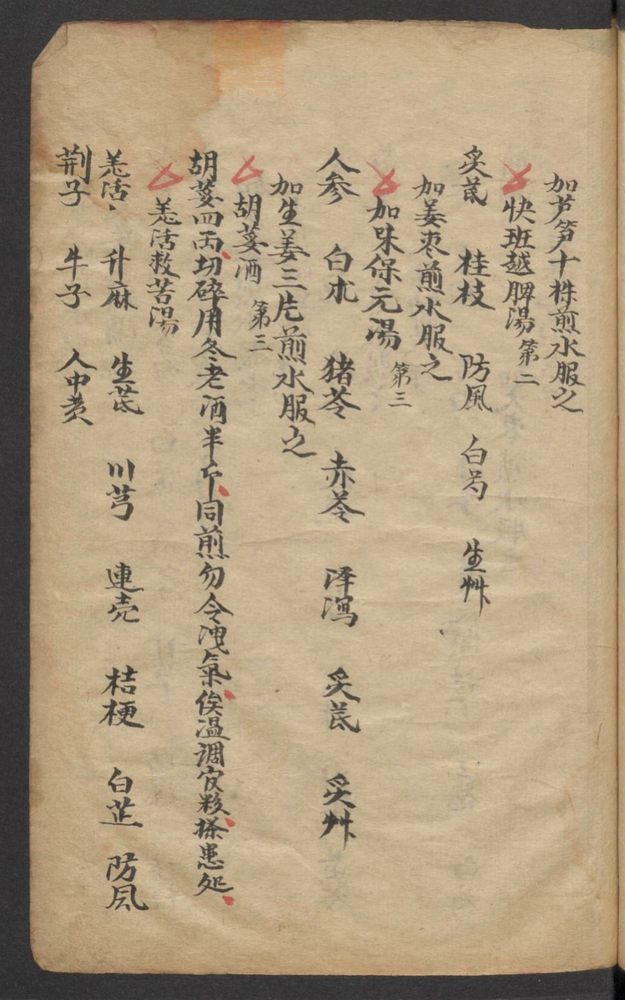 加芦笋十株煎水服之
快班越脾湯 第二
炙芪 桂枝 防風 白芍 生艸
加姜枣煎水服之
加味保元湯 第三
人参 白朮 猪苓 赤苓 泽瀉 炙芪 炙艸
加生姜三片煎水服之
胡荽酒 第三
胡荽四両切碎用冬老酒半斤同煎勿令洩氣俟温調 搽患処
羗活救苦湯
羗活 升麻 生芪 川芎 連壳 桔梗 白芷 防風
荆子 牛子 人中黄